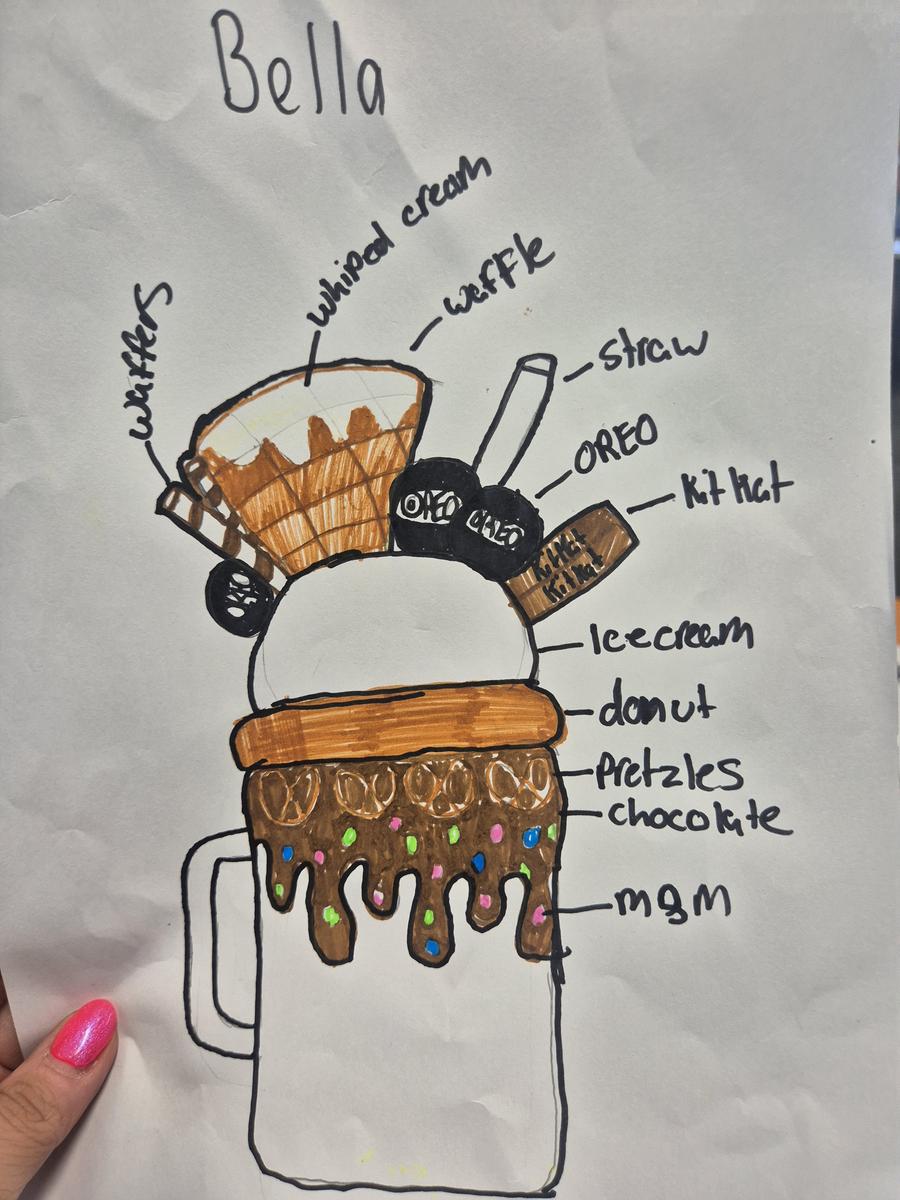 Bella
whiped cream
waffle
waffers
straw
OREO
Kit Kat
OREO
OREO
KitKat
KitKat
Icecream
donut
Pretzles
chocolate
m&M